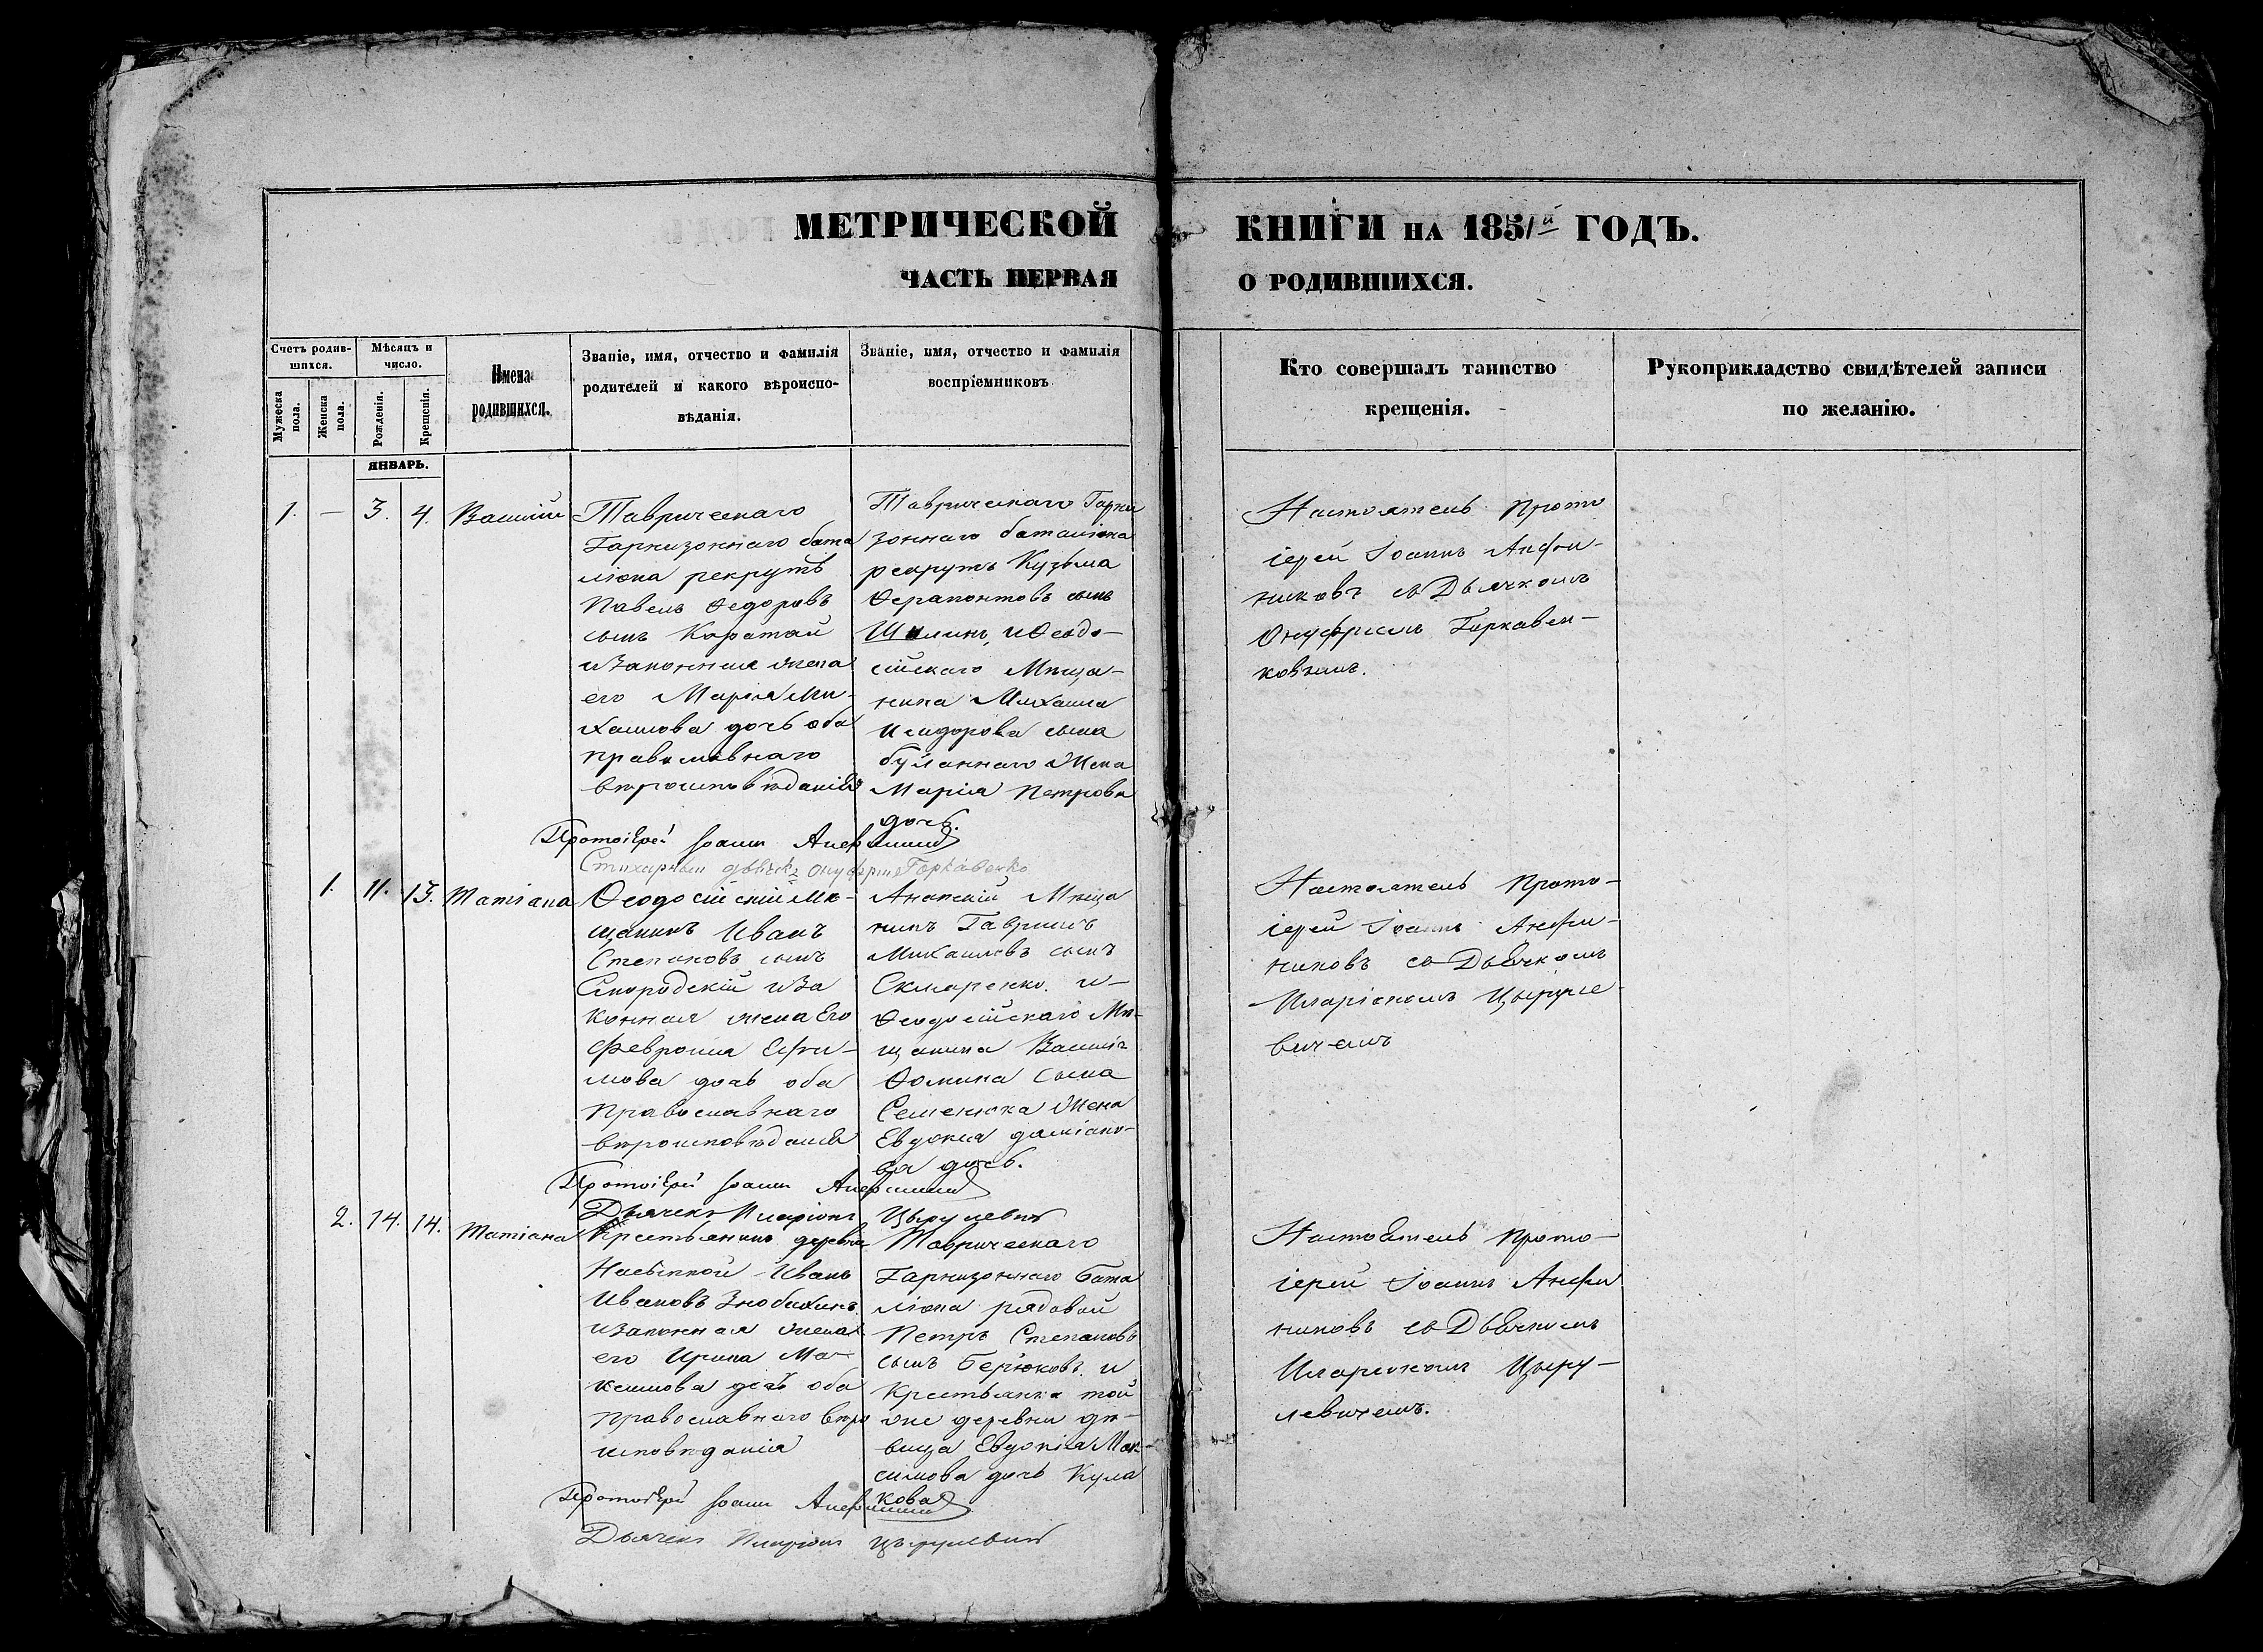 МЕТРИЧЕСКОЙ
ЧАСТЬ ПЕРВАЯ
КНИГИ НА 1851й ГОДЪ.
О РОДИВШИХСЯ.
Счетъ родив-
шихся.
Мужеска
пола.
Женска
пола.
Мѣсяцъ и
число.
Рожденія.
Крещенія.
Имена
родившихся.
Званіе, имя, отчество и фамилія
родителей и какого вѣроиспо-
вѣданія.
Званіе, имя, отчество и фамилія
воспріемниковъ
Кто совершалъ таинство
крещенія.
Рукоприкладство свидѣтелей записи
по желанію.
ЯНВАРЬ.
1. — 3. 4. Василій
Таврическаго
Гарнизоннаго бата
ліона рекрутъ
Павелъ Ѳедоровъ
сынъ Коротай
и законная жена
его Марія Ми-
хаилова дочь оба
православнаго
вѣроисповѣданія
Таврическаго Гарни
зоннаго баталіона
рекрутъ Кузьма
Ѳерапонтовъ сынъ
и Ѳеодо-
сійскаго Мѣща-
нина Михаила
Исидорова сына
жена
Марія Петрова
дочь.
Настоятель Прото
іерей Іоаннъ Анфи-
ногеновъ
никовъ съ Дьячкомъ
Онуфріемъ Горкавен-
ковымъ.
Протоіерей Іоаннъ
Стихарный дьячекъ Онуфрій Горкавенко
1. 11. 13. Татіана
Ѳеодосійскій Мѣ-
щанинъ Иванъ
Степановъ сынъ
и за
конная жена Его
Февронія Ефи-
мова дочь оба
Православнаго
вѣроисповѣданія
Анапскій Мѣща
нинъ Гавріилъ
Михаиловъ сынъ
Скляренко. и
Ѳеодосійскаго Мѣ-
щанина Василія
Ѳомина сына
Семенюка жена
Евдокія Даміано-
ва дочь.
Настоятель Прото-
іерей Іоаннъ Анфи-
никовъ съ Дьячкомъ
Иларіономъ Цыруле-
вичемъ
Протоіерей Іоаннъ
Дьячекъ Иларіонъ Цырулевич
2. 14. 14. Татіана
Крестьянинъ деревни
Насыпкой Иванъ
Ивановъ Знобихинъ
и законная жена
его Ирина Ма-
ксимова дочь оба
православнаго вѣро
исповѣданія
Таврическаго
Гарнизоннаго Бата
ліона рядовой
Петръ Степановъ
сынъ Берюковъ. и
Крестьянка той
же деревни дѣ-
вица Евдокія Мак-
симова дочь Кула
кова
Настоятель Прото-
іерей Іоаннъ Анфи
никовъ съ Дьячкомъ
Иларіономъ Цыру-
левичемъ.
Протоіерей Іоаннъ
Дьячекъ Иларіонъ Цырулевич